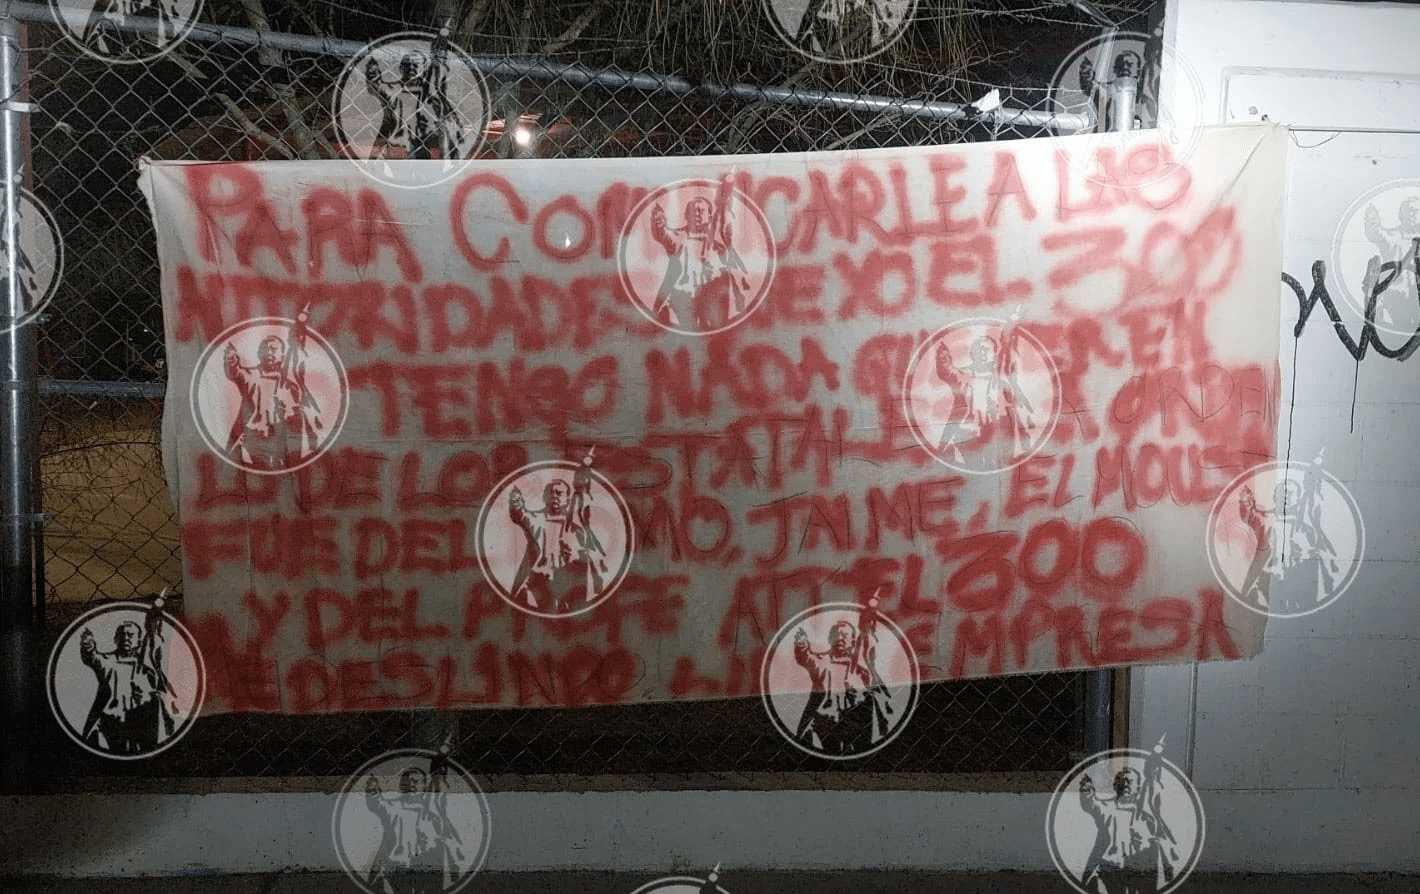 PARA COMUNICARLE A LAS
AUTORIDADES QUE YO EL 300
TENGO NADA QUE VER EN
LO DE LOS ESTATALES LA ORDEN
FUE DEL MO, JAIME, EL MOUSE
Y DEL PROFE ATT EL 300
ME DESLINDO LINEA EMPRESA